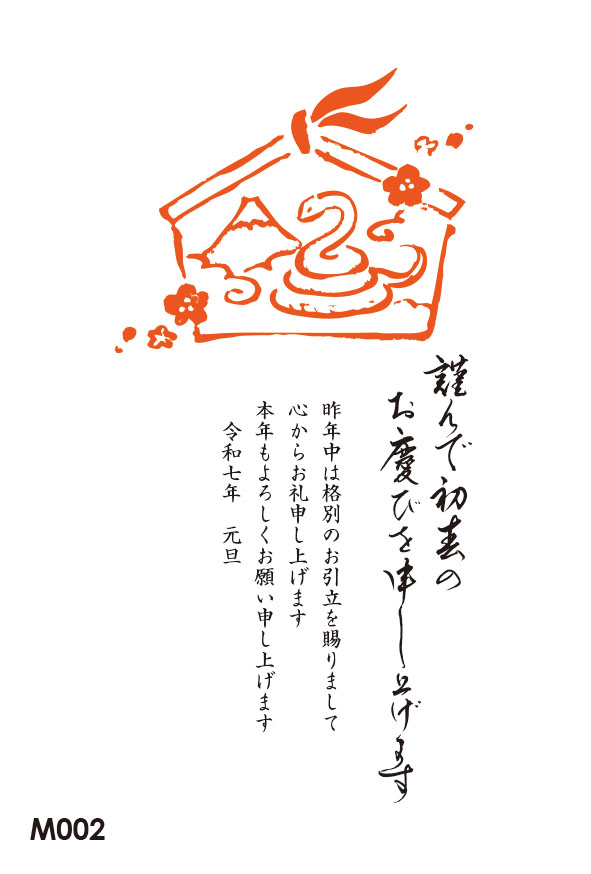 謹んで初春の
お慶びを申し上げます
昨年中は格別のお引立を賜りまして
心からお礼申し上げます
本年もよろしくお願い申し上げます
令和七年　元旦
M002